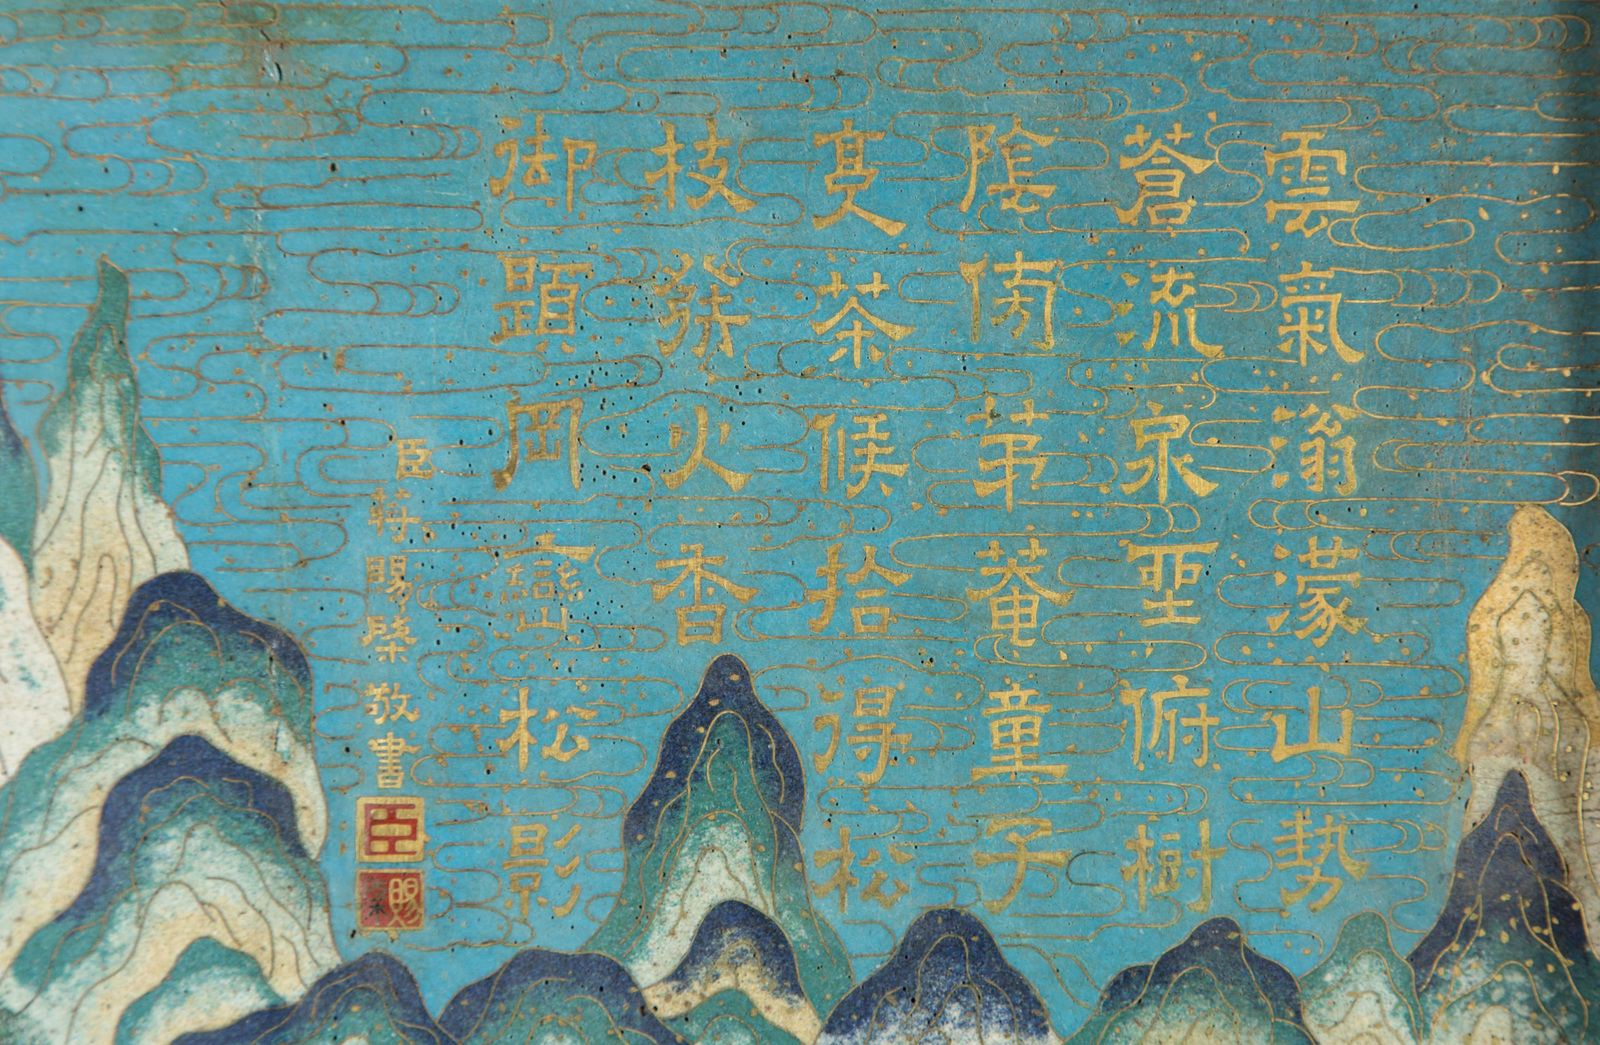 雲氣滃濛山勢
蒼流泉坐俯樹
陰傍茅菴童子
烹茶候拾得松
枝發火香
御題岡巒松影
臣蔣賜棨敬書
臣
賜棨